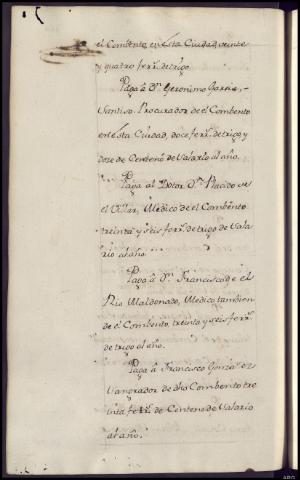 el Combento, en ésta Ciudad, veinte
y quatro ferr.s de trigo.
Paga â D.n Geronimo Garcia,
Santiso, Procurador de el Combento
en ésta Ciudad, doce ferr.s de trigo, y
doze de Centeno de Salario al año.
Paga al Dotor D.n Placido de
el Villar, Medico de el Combento
treinta y seis ferr.s de trigo de Sala
rio al año.
Paga â D.n Francisco de el
Rio Maldonado, Medico tambien
de el Combento, treinta y seis ferr.s
de trigo al año.
Paga â Francisco Gonzalez
de dho Combento tre
inta ferr.s de Centeno de Salario
al año.